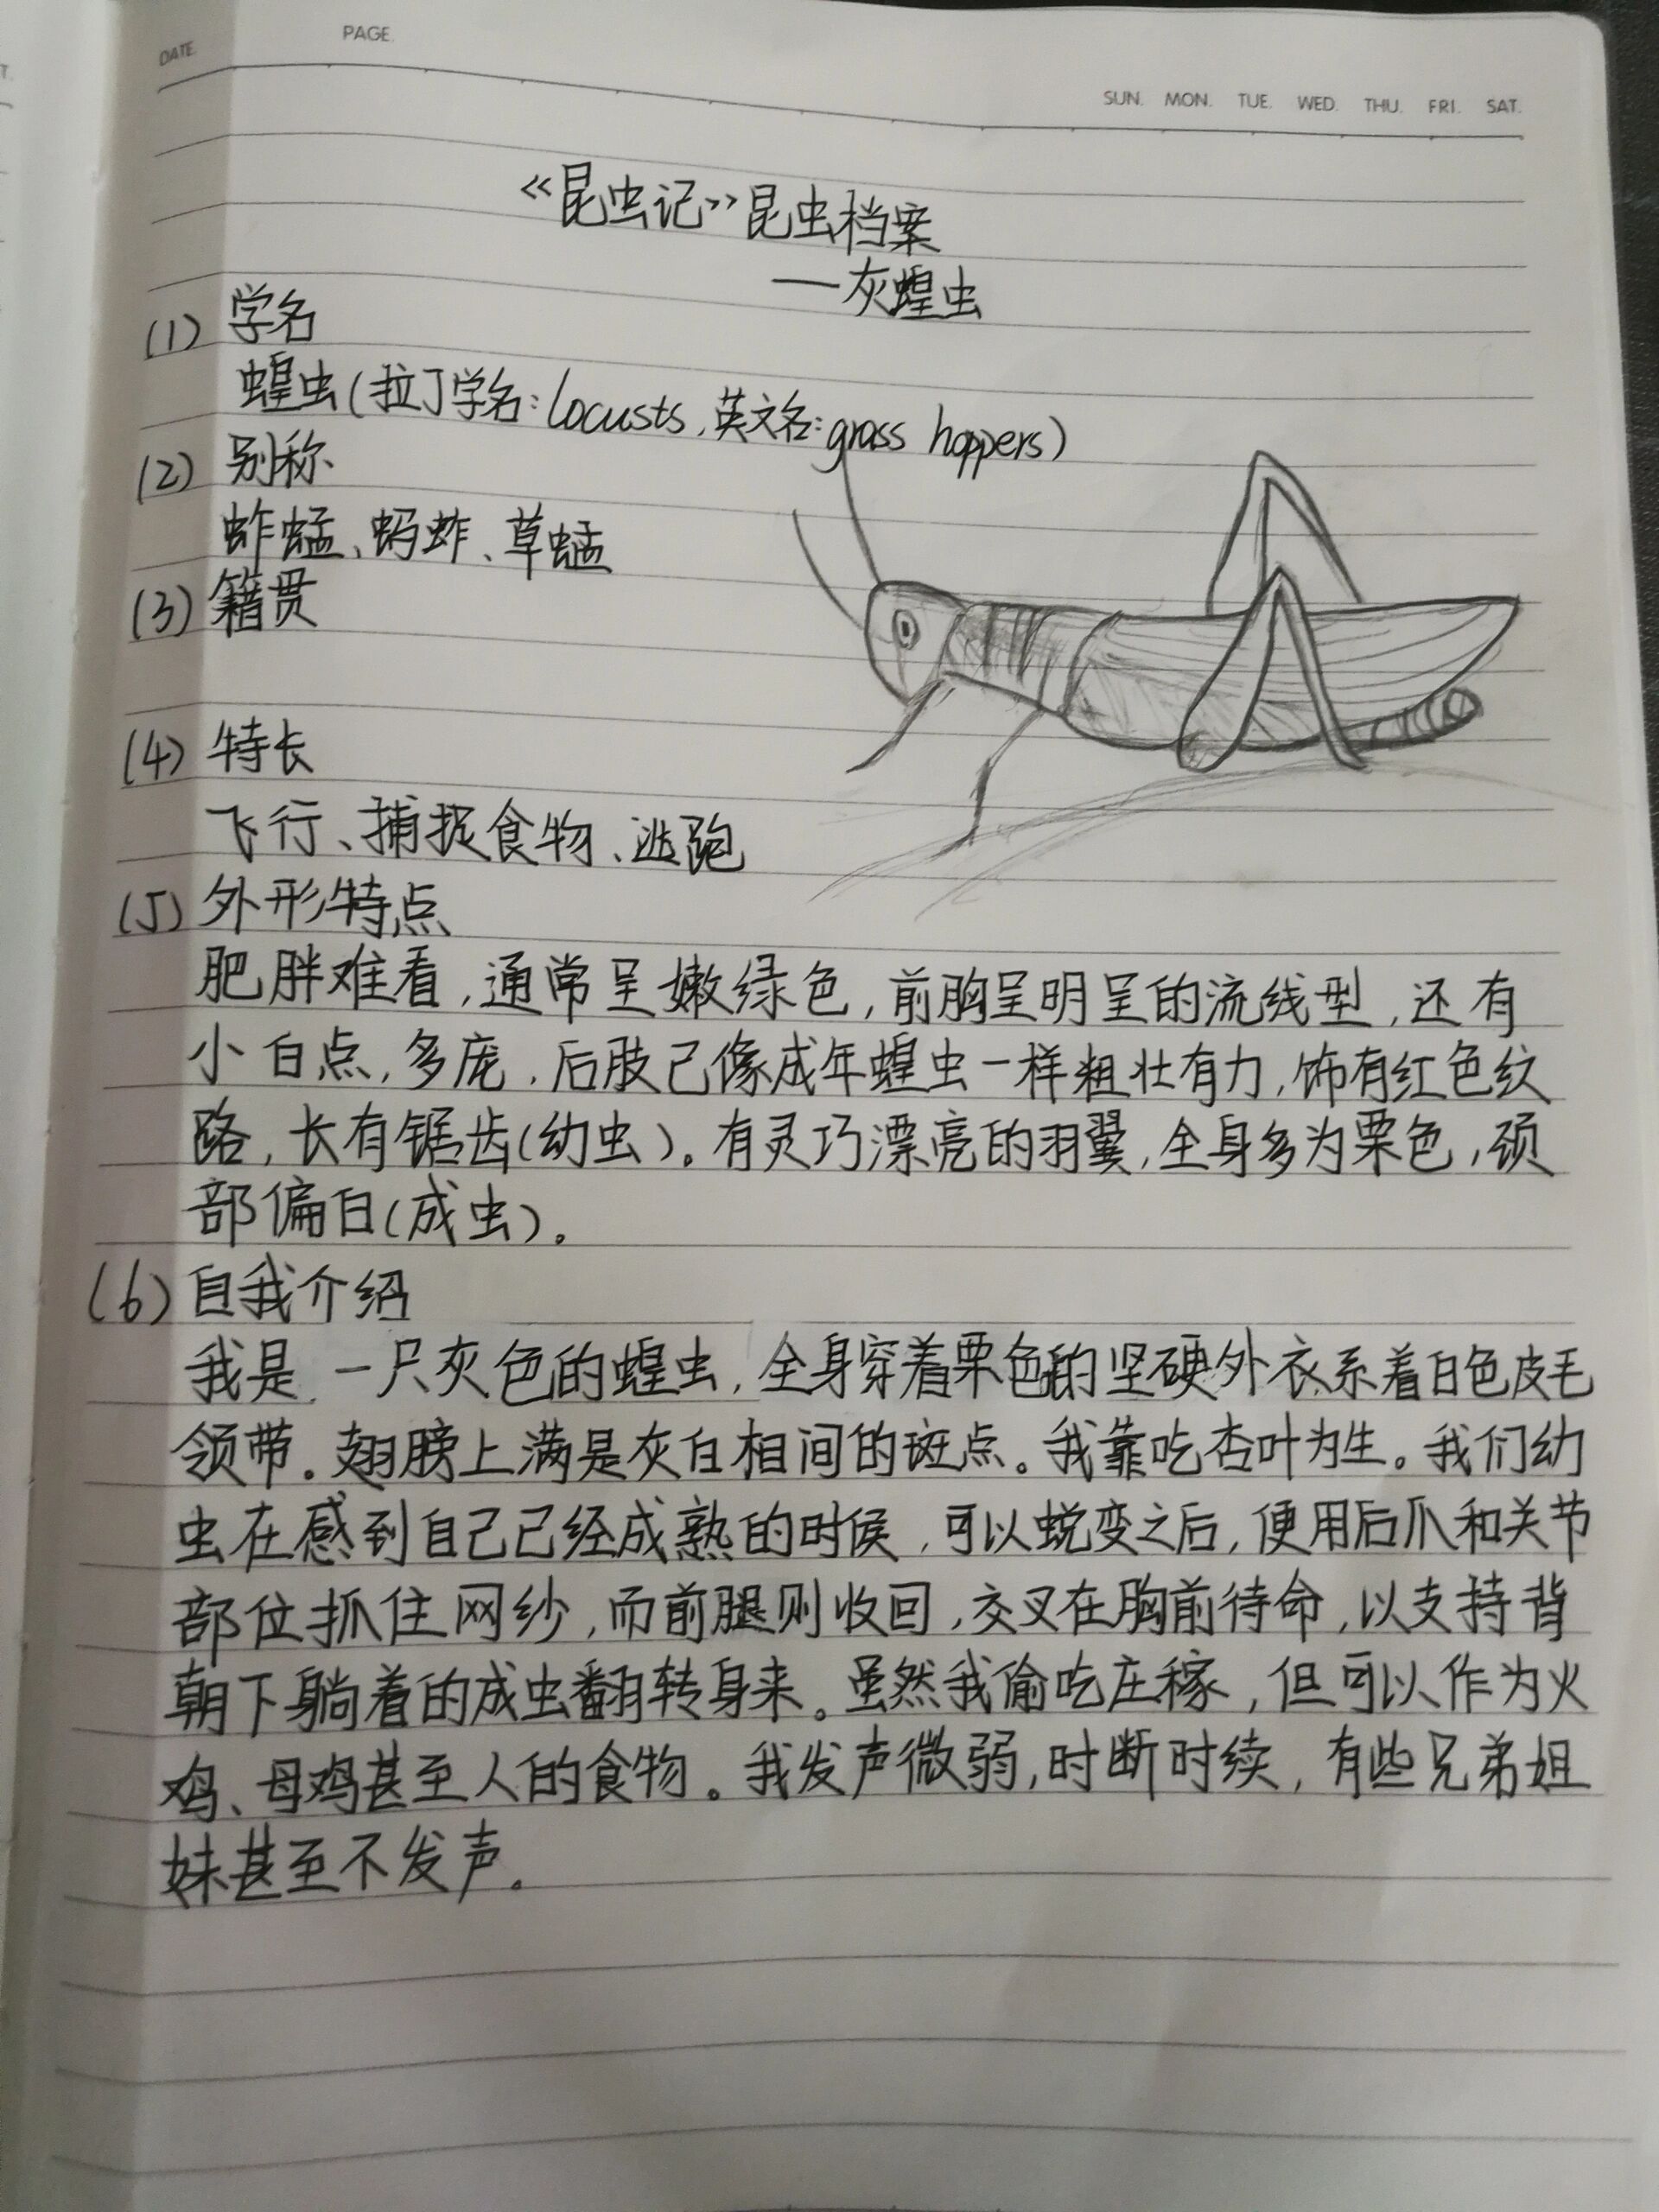 DATE.
PAGE.
SUN. MON. TUE. WED. THU. FRI. SAT.
《昆虫记》昆虫档案
—灰蝗虫
(1) 学名
蝗虫(拉丁学名:locusts,英文名:grass hoppers)
(2) 别称
蚱蜢、蚂蚱、草蜢
(3) 籍贯
(4) 特长
飞行、捕捉食物、逃跑
(5) 外形特点
肥胖难看,通常呈嫩绿色,前胸呈明呈的流线型,还有
小白点,多庞,后肢已像成年蝗虫一样粗壮有力,饰有红色纹
路,长有锯齿(幼虫)。有灵巧漂亮的羽翼,全身多为栗色,颈
部偏白(成虫)。
(6) 自我介绍
我是一只灰色的蝗虫,全身穿着栗色的坚硬外衣系着白色皮毛
领带。翅膀上满是灰白相间的斑点。我靠吃杏叶为生。我们幼
虫在感到自己已经成熟的时候,可以蜕变之后,便用后爪和关节
部位抓住网纱,而前腿则收回,交叉在胸前待命,以支持背
朝下躺着的成虫翻转身来。虽然我偷吃庄稼,但可以作为火
鸡、母鸡甚至人的食物。我发声微弱,时断时续,有些兄弟姐
妹甚至不发声。